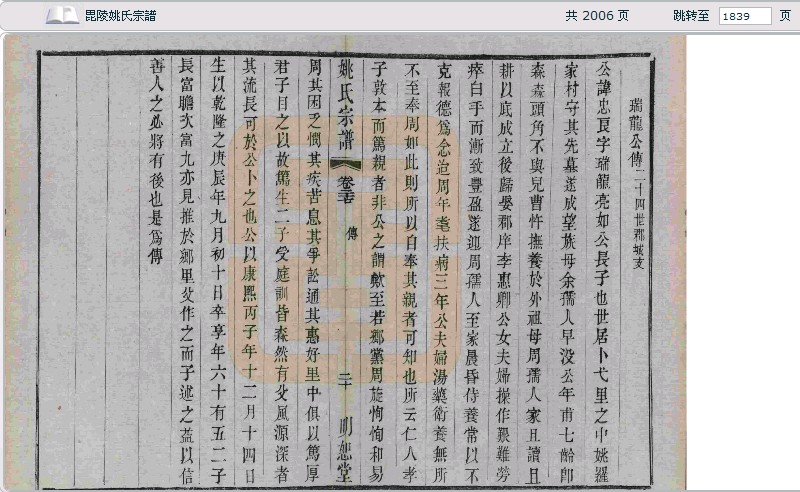 毘陵姚氏宗譜
共 2006 页
跳转至 1839 页
瑞龍公傳 二十四世郡城支
公諱忠良字瑞龍亮如公長子也世居卜弋里之中姚羅
家村守其先墓遂成望族母余孺人早没公年甫七齡卽
森森頭角不與兒曹忤撫養於外祖母周孺人家且讀且
耕以底成立後歸娶郡庠李惠卿公女夫婦操作艱難勞
瘁白手而漸致豐盈遂迎周孺人至家晨昏侍養常以不
克報德爲念迨周年耄扶病三年公夫婦湯藥衛養無所
不至奉周如此則所以自奉其親者可知也所云仁人孝
子敦本而篤親者非公之謂歟至若鄉黨周旋恂恂和易
姚氏宗譜 卷 傳 二十 明恕堂
周其困乏憫其疾苦息其爭訟通其惠好里中俱以篤厚
君子目之以故篤生二子受庭訓皆森然有父風源深者
其流長可於公卜之也公以康熙丙子年十二月十四日
生以乾隆之庚辰年九月初十日卒享年六十有五二子
長富瞻次富九亦見推於鄉里父作之而子述之益以信
善人之必將有後也是爲傳